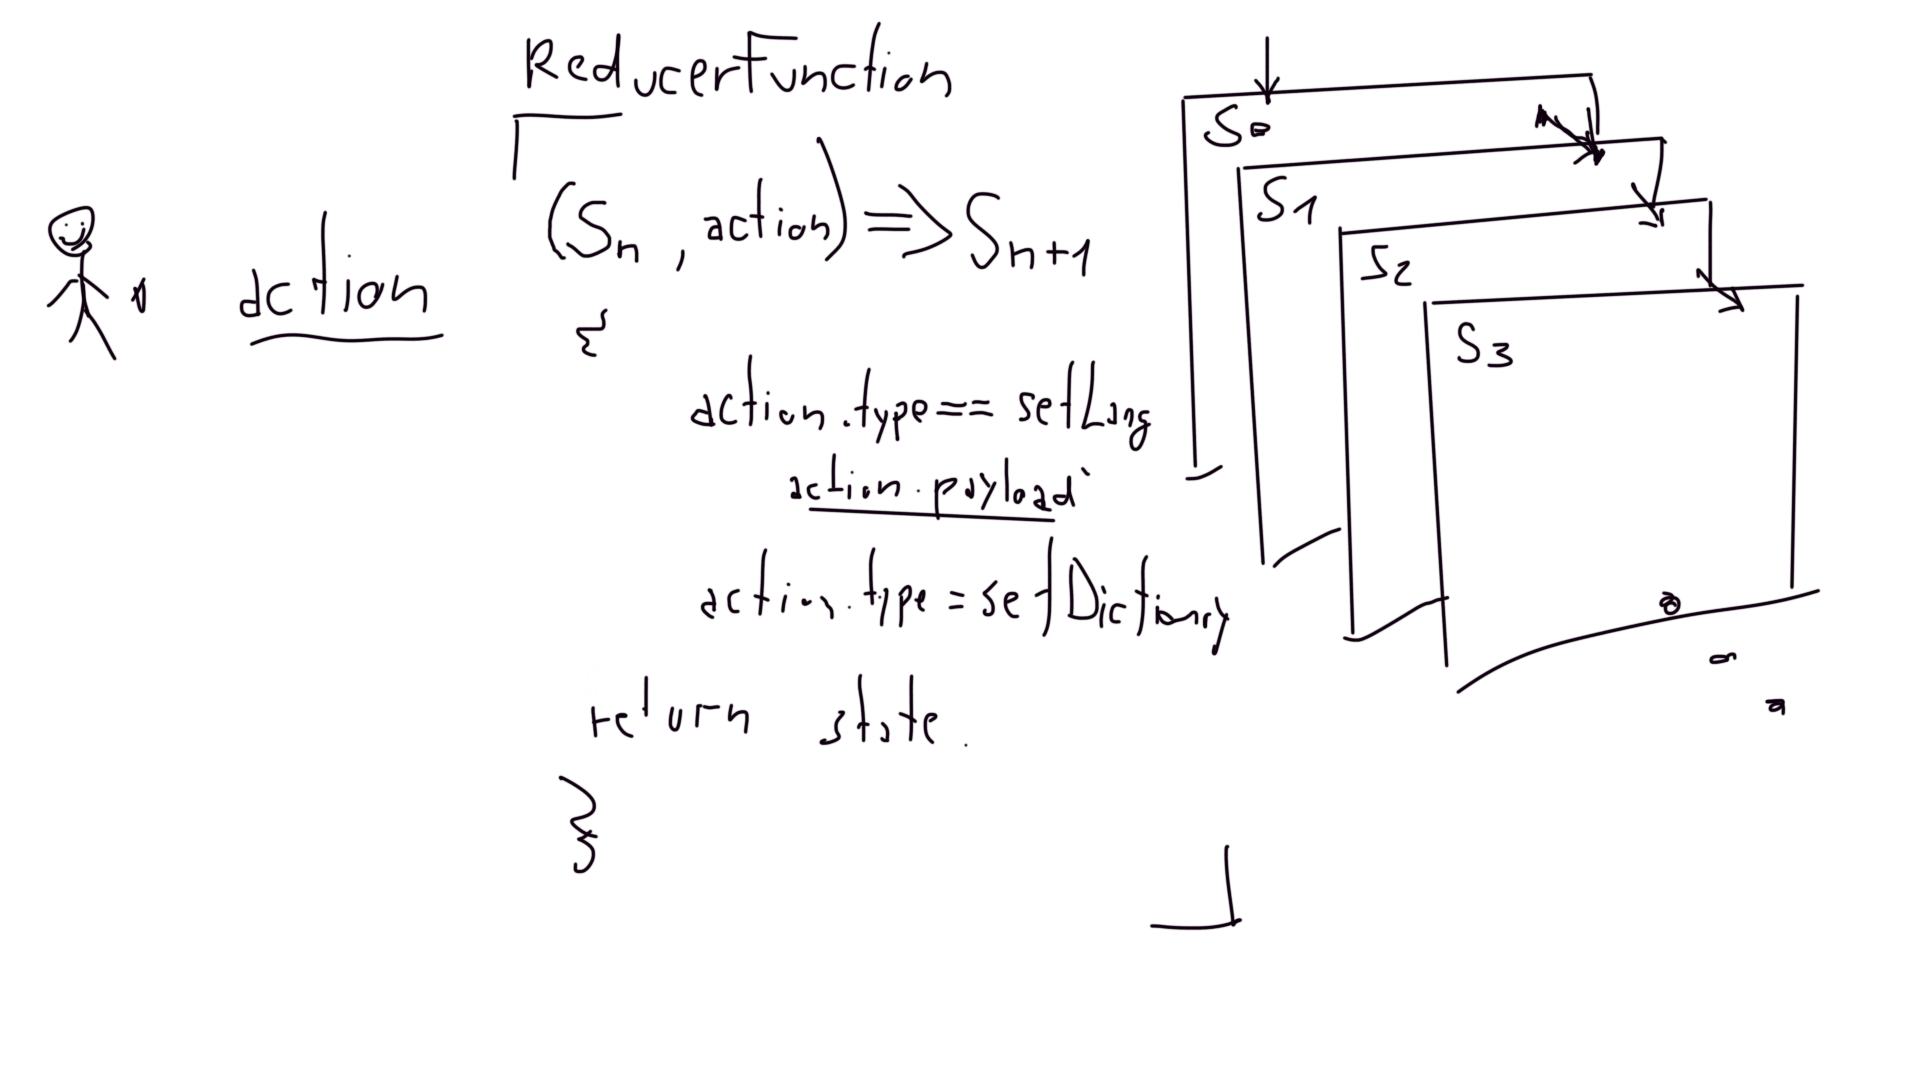 ReducerFunction
(Sn, action) => Sn+1
action
{
action.type == setLang
action.payload
action.type = setDictionry
return state.
}
S0
S1
S2
S3